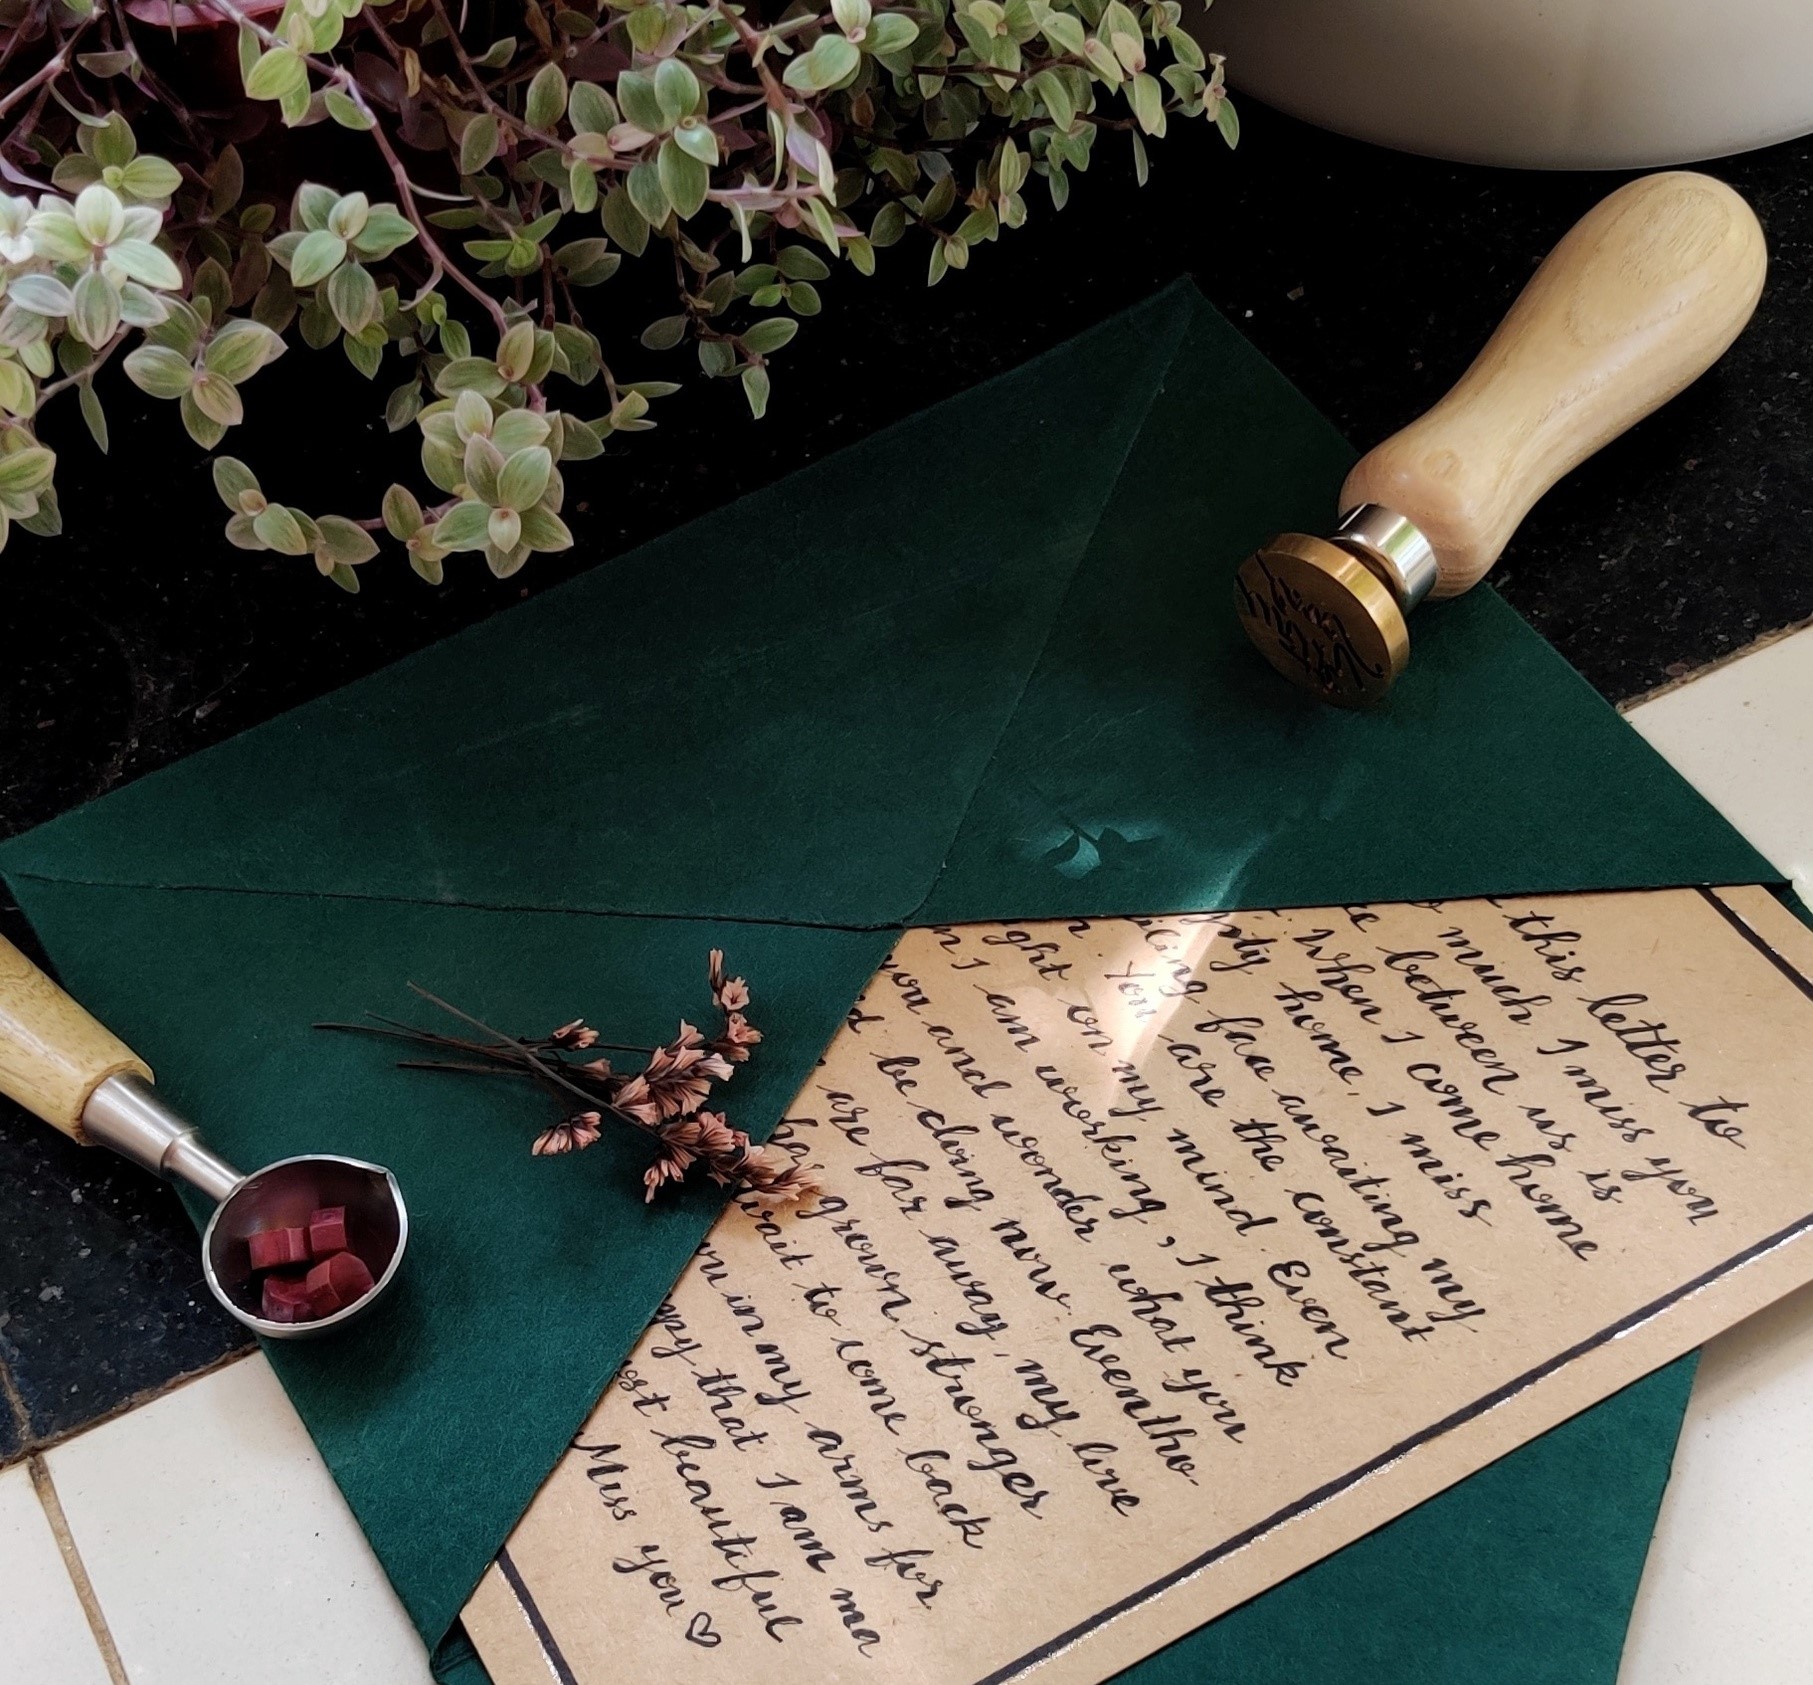 this letter to
much I miss you
between us is
When I come home
home, I miss
face awaiting my
You are the constant
on my mind. Even
I am working, I think
you and wonder what you
be doing now. Eventho
are far away, my live
grown stronger
wait to come back
in my arms for
that I am ma
beautiful
Miss you ♡